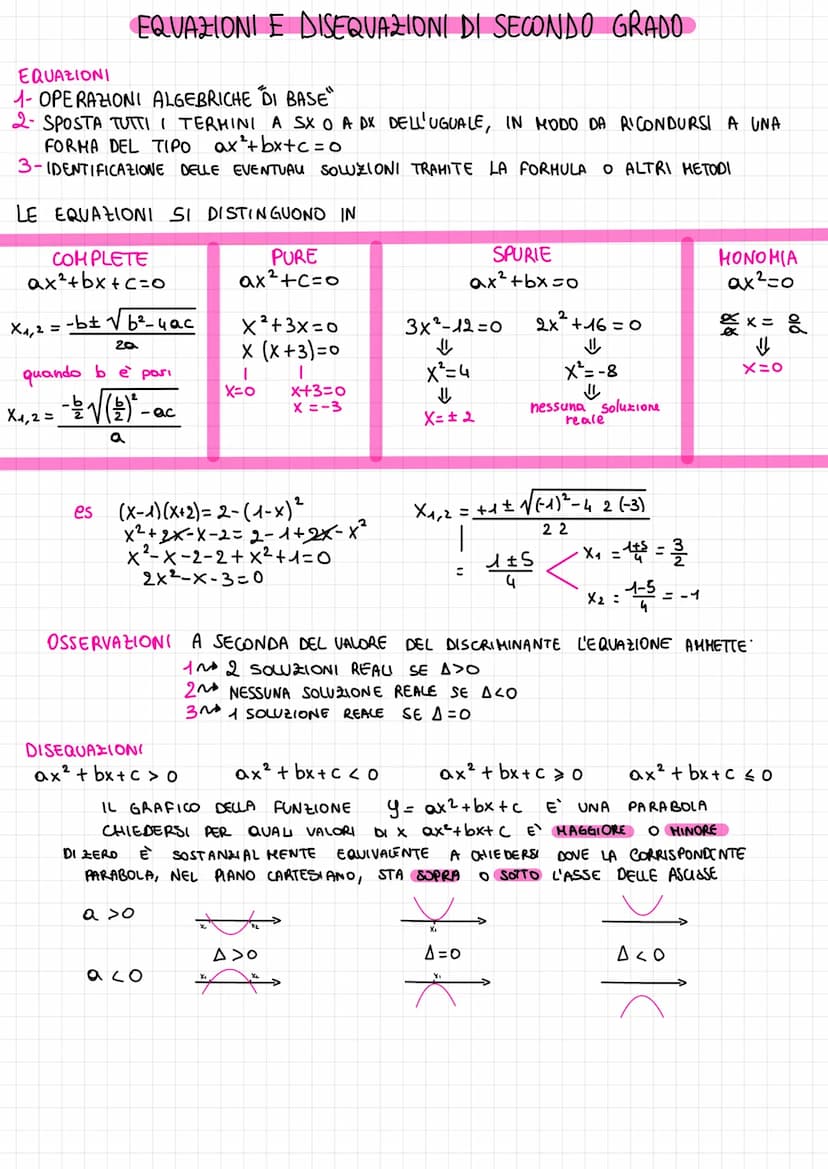 EQUAZIONI E DISEQUAZIONI DI SECONDO GRADO
EQUAZIONI
1- OPERAZIONI ALGEBRICHE "DI BASE"
2- SPOSTA TUTTI I TERMINI A SX O A DX DELL'UGUALE, IN MODO DA RICONDURSI A UNA
FORMA DEL TIPO ax²+bx+c=0
3- IDENTIFICAZIONE DELLE EVENTUALI SOLUZIONI TRAMITE LA FORMULA O ALTRI METODI
LE EQUAZIONI SI DISTINGUONO IN
COMPLETE
ax²+bx+c=0
x₁,₂ = -b± √b²-4ac
2a
quando b è pari
x₁,₂ = -b/2 √(b/2)²-ac
a
PURE
ax²+c=0
x²+3x=0
x (x+3)=0
| |
x=0 x+3=0
x=-3
SPURIE
ax²+bx=0
3x²-12=0 2x²+16=0
⇓ ⇓
x²=4 x²=-8
⇓ ⇓
x=±2 nessuna soluzione
reale
MONOMIA
ax²=0
a/a x = 0/a
⇓
x=0
es (x-1)(x+2)= 2-(1-x)²
x²+2x-x-2= 2-1+2x-x²
x²-x-2-2+x²+1=0
2x²-x-3=0
x₁,₂ = +1± √(-1)²-4 2 (-3)
2 2
= 1±5
4
x₁ = 1+5/4 = 3/2
x₂ = 1-5/4 = -1
OSSERVAZIONI A SECONDA DEL VALORE DEL DISCRIMINANTE L'EQUAZIONE AMMETTE:
1⇝ 2 SOLUZIONI REALI SE Δ>0
2⇝ NESSUNA SOLUZIONE REALE SE Δ<0
3⇝ 1 SOLUZIONE REALE SE Δ=0
DISEQUAZIONI
ax²+bx+c > 0 ax²+bx+c < 0 ax²+bx+c ⩾ 0 ax²+bx+c ⩽ 0
IL GRAFICO DELLA FUNZIONE y= ax²+bx+c E' UNA PARABOLA
CHIEDERSI PER QUALI VALORI DI X ax²+bx+c E' MAGGIORE O MINORE
DI ZERO È SOSTANZIALMENTE EQUIVALENTE A CHIEDERSI DOVE LA CORRISPONDENTE
PARABOLA, NEL PIANO CARTESIANO, STA SOPRA O SOTTO L'ASSE DELLE ASCISSE
a >0 x₁ x₂ x₁
Δ>0 Δ=0 Δ<0
a <0 x₁ x₂ x₁